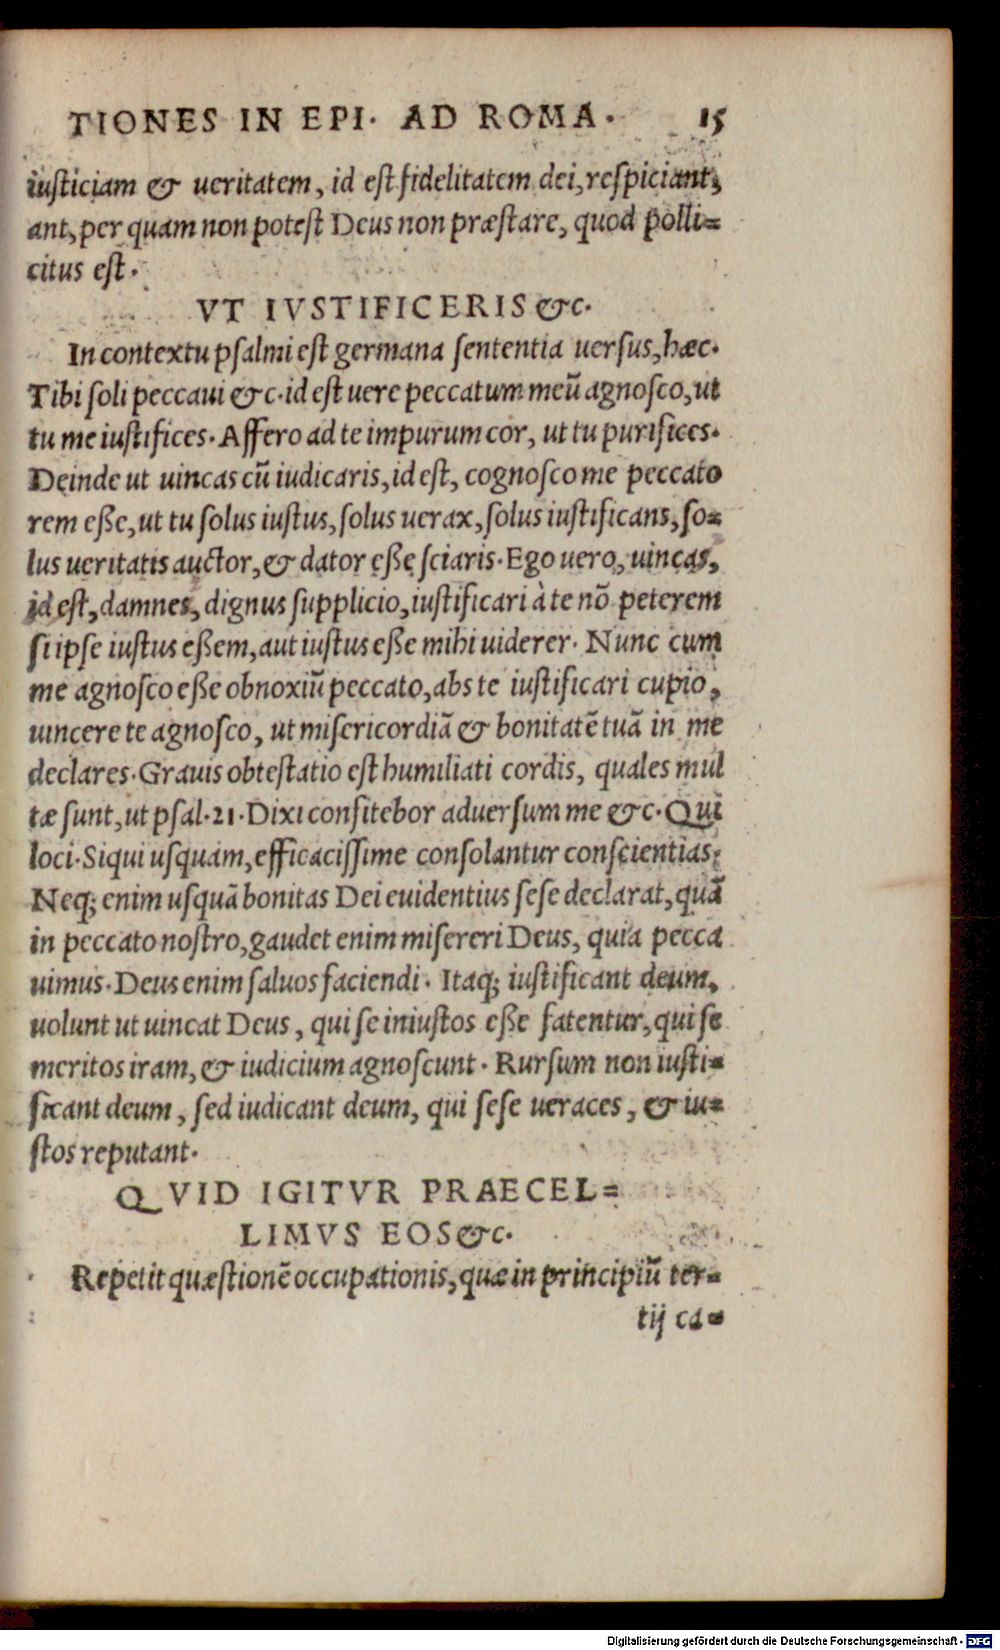 TIONES IN EPI. AD ROMA. 15
iusticiam & ueritatem, id est fidelitatem dei, respiciant,
ant, per quam non potest Deus non præstare, quod polli=
citus est.
VT IVSTIFICERIS &c.
In contextu psalmi est germana sententia uersus, hæc.
Tibi soli peccaui &c. id est uere peccatum meũ agnosco, ut
tu me iustifices. Affero ad te impurum cor, ut tu purifices.
Deinde ut uincas cũ iudicaris, id est, cognosco me peccato
rem eße, ut tu solus iustus, solus uerax, solus iustificans, so=
lus ueritatis auctor, & dator eße sciaris. Ego uero, uincas,
id est, damnes, dignus supplicio, iustificari à te nõ peterem
si ipse iustus eßem, aut iustus eße mihi uiderer. Nunc cum
me agnosco eße obnoxiũ peccato, abs te iustificari cupio,
uincere te agnosco, ut misericordiã & bonitatẽ tuã in me
declares. Grauis obtestatio est humiliati cordis, quales mul
tæ sunt, ut psal. 21. Dixi confitebor aduersum me &c. Qui
loci. Siqui usquam, efficacissime consolantur conscientias,
Neq; enim usquã bonitas Dei euidentius sese declarat, quã
in peccato nostro, gaudet enim misereri Deus, quia pecca
uimus. Deus enim saluos faciendi. Itaq; iustificant deum,
uolunt ut uincat Deus, qui se iniustos eße fatentur, qui se
meritos iram, & iudicium agnoscunt. Rursum non iusti=
ficant deum, sed iudicant deum, qui sese ueraces, & iu=
stos reputant.
QVID IGITVR PRAECEL=
LIMVS EOS &c.
Repetit quæstionẽ occupationis, quæ in principiũ ter=
tij ca=
Digitalisierung gefördert durch die Deutsche Forschungsgemeinschaft - DFG